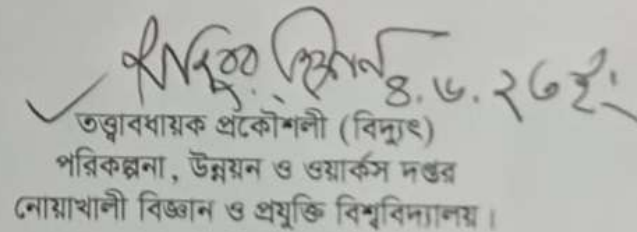 ৪.৬.২৬ইং
তত্ত্বাবধায়ক প্রকৌশলী (বিদ্যুৎ)
পরিকল্পনা, উন্নয়ন ও ওয়ার্কস দপ্তর
নোয়াখালী বিজ্ঞান ও প্রযুক্তি বিশ্ববিদ্যালয়।